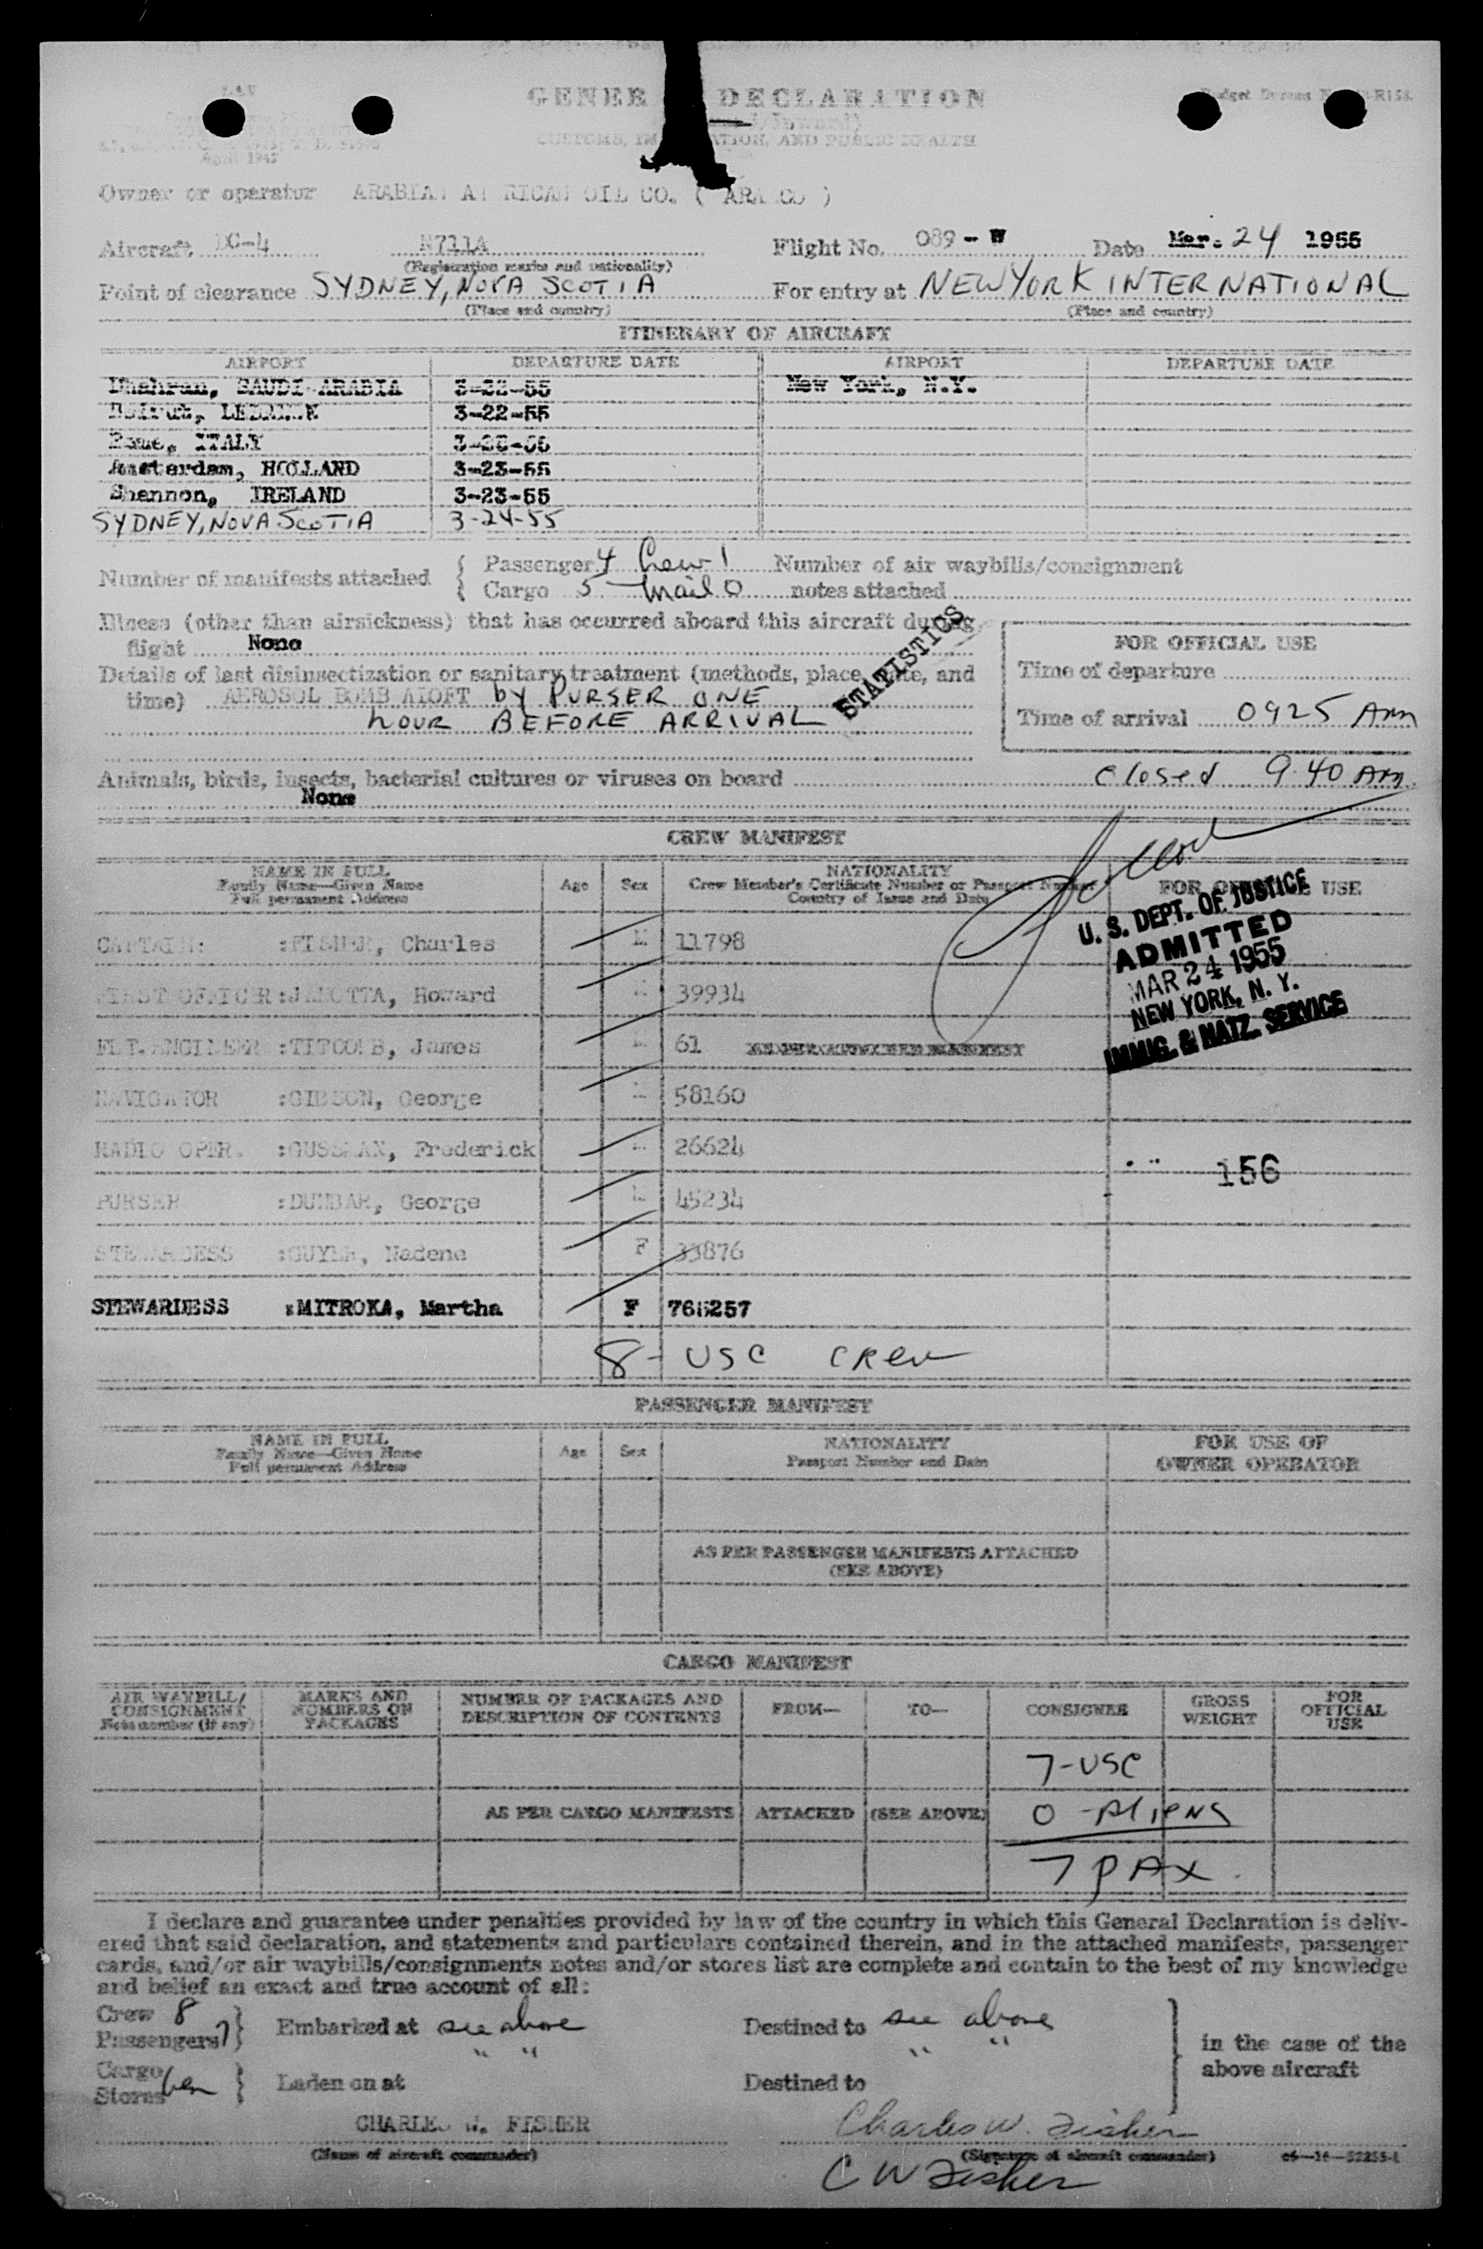 GENER DECLARATION
(Inward)
CUSTOMS, IM ATION, AND PUBLIC HEALTH
April 1947
Owner or operator ARABIAN A RICAN OIL CO. ( ARA CO )
Aircraft DC-4 N711A Flight No. 089-W Date Mar. 24 1955
(Registration marks and nationality)
Point of clearance SYDNEY, NOVA SCOTIA For entry at NEW YORK INTERNATIONAL
(Place and country) (Place and country)
ITINERARY OF AIRCRAFT
AIRPORT DEPARTURE DATE AIRPORT DEPARTURE DATE
Dhahran, SAUDI ARABIA 3-22-55 New York, N.Y.
Beirut, LEBANON 3-22-55
Rome, ITALY
Amsterdam, HOLLAND 3-23-55
Shannon, IRELAND 3-23-55
SYDNEY, NOVA SCOTIA 3-24-55
Number of manifests attached { Passenger 4 Crew 1 Number of air waybills/consignment
Cargo 5 Mail 0 notes attached
Illness (other than airsickness) that has occurred aboard this aircraft during
flight None
STATISTICS
FOR OFFICIAL USE
Time of departure
Time of arrival 0925 Am
Details of last disinsectization or sanitary treatment (methods, place, date, and
time) AEROSOL BOMB ALOFT by PURSER ONE
hour BEFORE ARRIVAL
Animals, birds, insects, bacterial cultures or viruses on board closed 9.40 Am.
None
CREW MANIFEST
NAME IN FULL Age Sex NATIONALITY FOR OFFICIAL USE
Family Name—Given Name Crew Member's Certificate Number or Passport Number
Full permanent Address Country of Issue and Date
U. S. DEPT. OF JUSTICE
ADMITTED
MAR 24 1955
NEW YORK, N. Y.
IMMIG. & NATZ. SERVICE
CAPTAIN: :FISHER, Charles M 11798
FIRST OFFICER :JANOTTA, Howard 39934
FLT.ENGINEER :TITCOMB, James 61
NAVIGATOR :GIBSON, George 58160
RADIO OPER. :GUSSMAN, Frederick 26624
156
PURSER :DUNBAR, George 45234
STEWARDESS :GUYER, Nadene F 33876
STEWARDESS :MITROKA, Martha F 765257
8- USC CREW
PASSENGER MANIFEST
NAME IN FULL Age Sex NATIONALITY FOR USE OF
Family Name—Given Name Passport Number and Date OWNER OPERATOR
Full permanent Address
AS PER PASSENGER MANIFESTS ATTACHED
(SEE ABOVE)
CARGO MANIFEST
AIR WAYBILL/ MARKS AND NUMBER OF PACKAGES AND FROM— TO— CONSIGNEE GROSS FOR
CONSIGNMENT NUMBERS ON DESCRIPTION OF CONTENTS WEIGHT OFFICIAL
Note number (if any) PACKAGES USE
7-USC
AS PER CARGO MANIFESTS ATTACHED (SEE ABOVE) 0 -Aliens
7 PAX.
I declare and guarantee under penalties provided by law of the country in which this General Declaration is deliv-
ered that said declaration, and statements and particulars contained therein, and in the attached manifests, passenger
cards, and/or air waybills/consignments notes and/or stores list are complete and contain to the best of my knowledge
and belief an exact and true account of all:
Crew 8 Embarked at see above Destined to see above in the case of the
Passengers 7 " " " " above aircraft
Cargo Laden on at Destined to
Stores
CHARLES W. FISHER Charles W. Fisher
(Name of aircraft commander) (Signature of aircraft commander)
C W Fisher